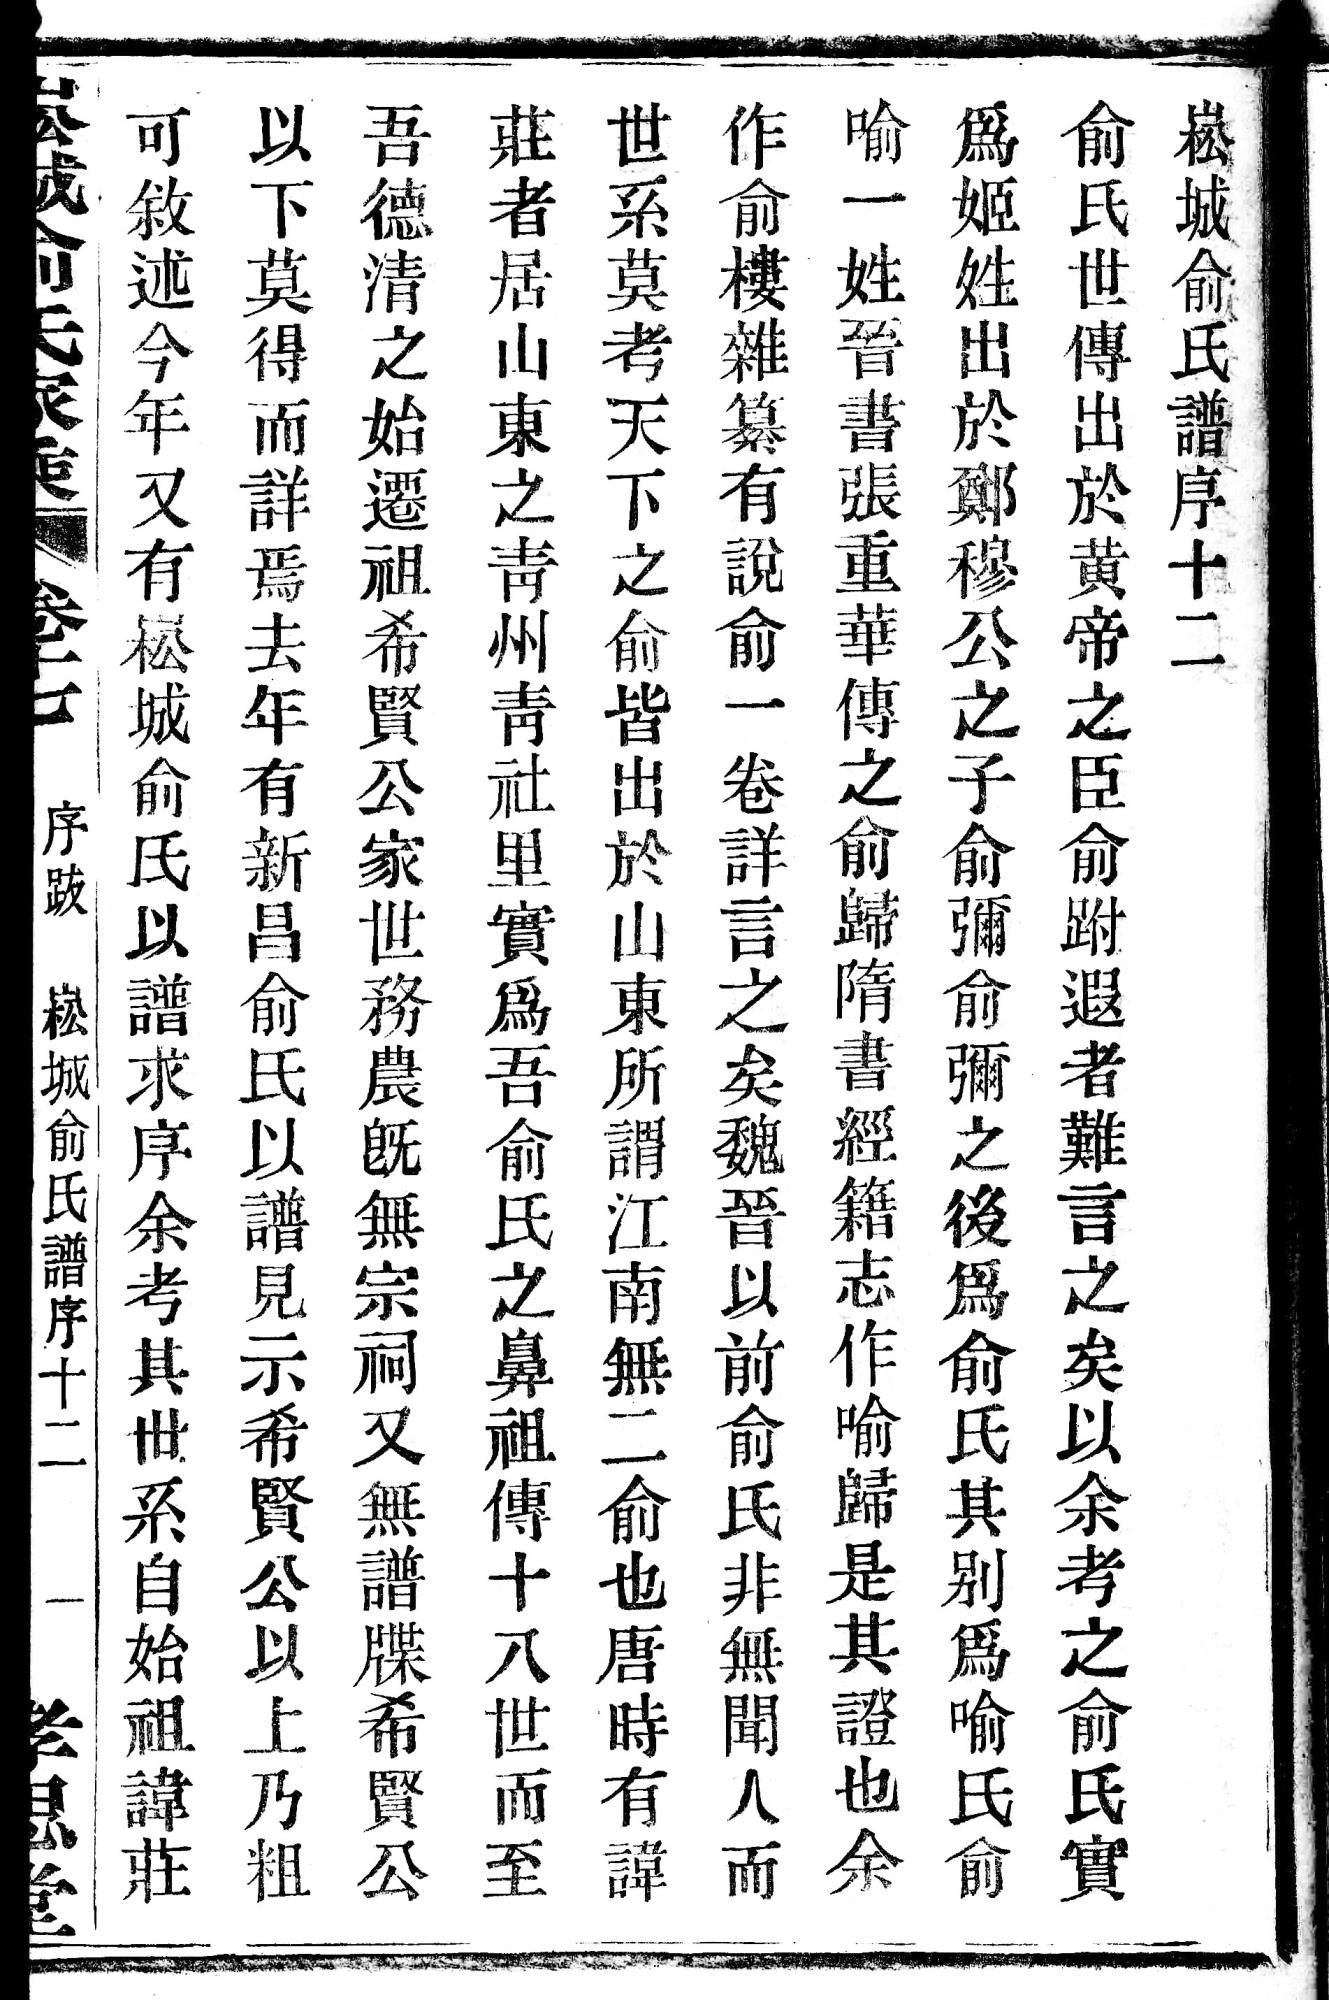 崧城俞氏譜序十二
俞氏世傳出於黃帝之臣俞跗遐者難言之矣以余考之俞氏實
爲姬姓出於鄭穆公之子俞彌俞彌之後爲俞氏其別爲喻氏俞
喻一姓晉書張重華傳之俞歸隋書經籍志作喻歸是其證也余
作俞樓雜纂有說俞一卷詳言之矣魏晉以前俞氏非無聞人而
世系莫考天下之俞皆出於山東所謂江南無二俞也唐時有諱
莊者居山東之靑州靑社里實爲吾俞氏之鼻祖傳十八世而至
吾德清之始遷祖希賢公家世務農旣無宗祠又無譜牒希賢公
以下莫得而詳焉去年有新昌俞氏以譜見示希賢公以上乃粗
可敘述今年又有崧城俞氏以譜求序余考其世系自始祖諱莊
崧城俞氏家乘 卷十七 序跋 崧城俞氏譜序十二 一 孝思堂